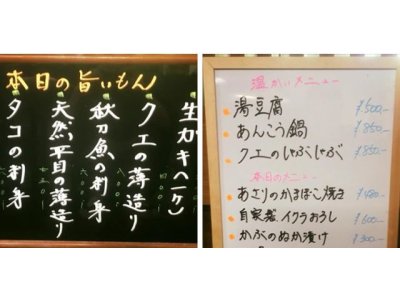 本日の旨いもん
生ガキ(一ケ)
クエの薄造り
秋刀魚の刺身
天然平目の薄造り
タコの刺身
温かいメニュー
湯豆腐 ¥500-
あんこう鍋 ¥850-
クエのしゃぶしゃぶ ¥850-
本日のメニュー
あさりのかまぼこ焼き ¥480-
自家製イクラおろし ¥600-
かぶのぬか漬け ¥300-